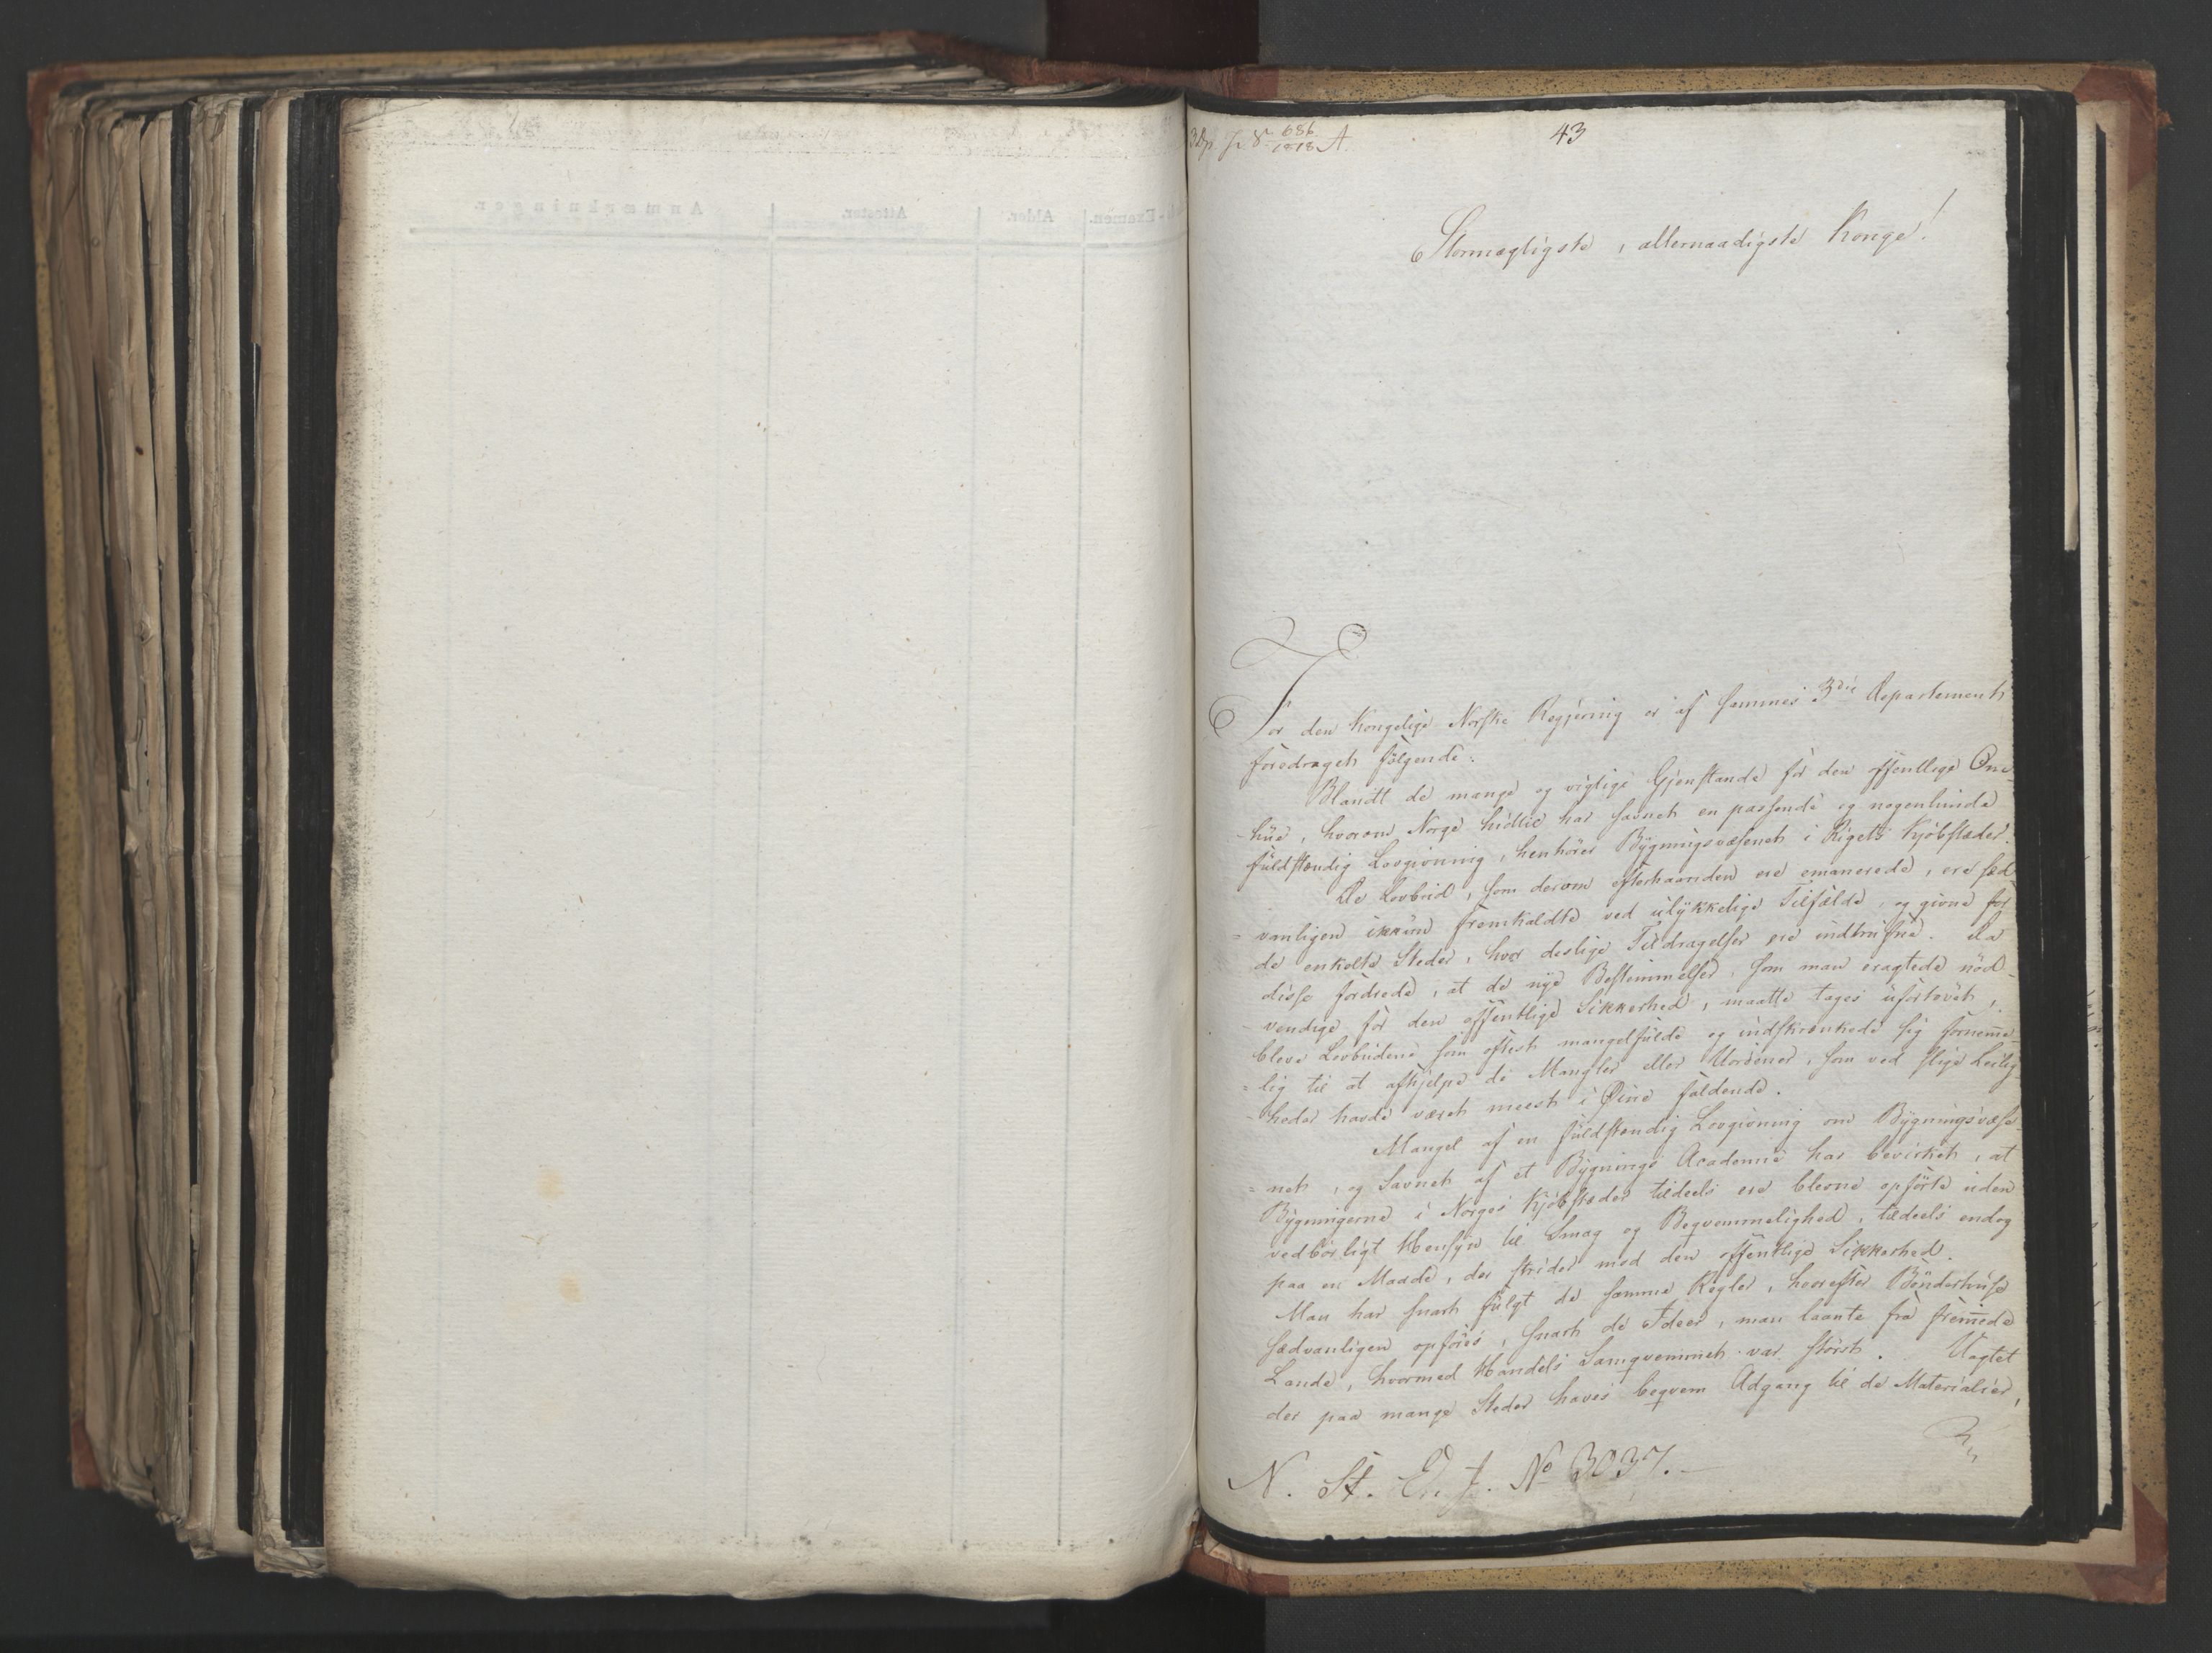 3 Dp. J. 8 686/1818 A.
43
Stormægtigste, allernaadigste Konge!
For den Kongelige Norske Regjering er af sammes 3die Departement
foredraget følgende:
Blandt de mange og vigtige Gjenstande for den offentlige Om-
hue, hvorom Norge hidtil har savnet en passende og nogenlunde
fuldstændig Lovgivning, henhører Bygningsvæsenet i Rigets Kjøbstæder.
De Lovbud, som derom efterhaanden ere emanerede, ere sæd-
vanligen ikkun fremkaldte ved ulykkelige Tilfælde, og givne for
de enkelte Steder, hvor deslige Tildragelser ere indtrufne. Da
disse fordrede, at de nye Bestemmelser, som man eragtede nød-
vendige for den offentlige Sikkerhed, maatte tages ufortøvet,
bleve Lovbudene som oftest mangelfulde og indskrænkede sig fornemme-
=lig til at afhjelpe de Mangler eller Uordener, som ved slige Leilig-
heder havde været meest i Øine faldende.
Mangel af en fuldstændig Lovgivning om Bygningsvæse-
=net, og Savnet af et Bygnings Academie har bevirket, at
Bygningerne i Norges Kjøbstæder tildeels ere blevne opførte uden
vedbørligt Hensyn til Smag og Beqvemmelighed, tildeels endog
paa en Maade, der strider mod den offentlige Sikkerhed.
Man har snart fulgt de samme Regler, hvorefter Bønderhuse
sædvanligen opføres, snart de Ideer, man laante fra fremmede
Lande, hvormed Handels Samqvemmet var størst. Uagtet
der paa mange Steder haves beqvem Adgang til de Materialier,
N. St. Ex. J. No 3037.